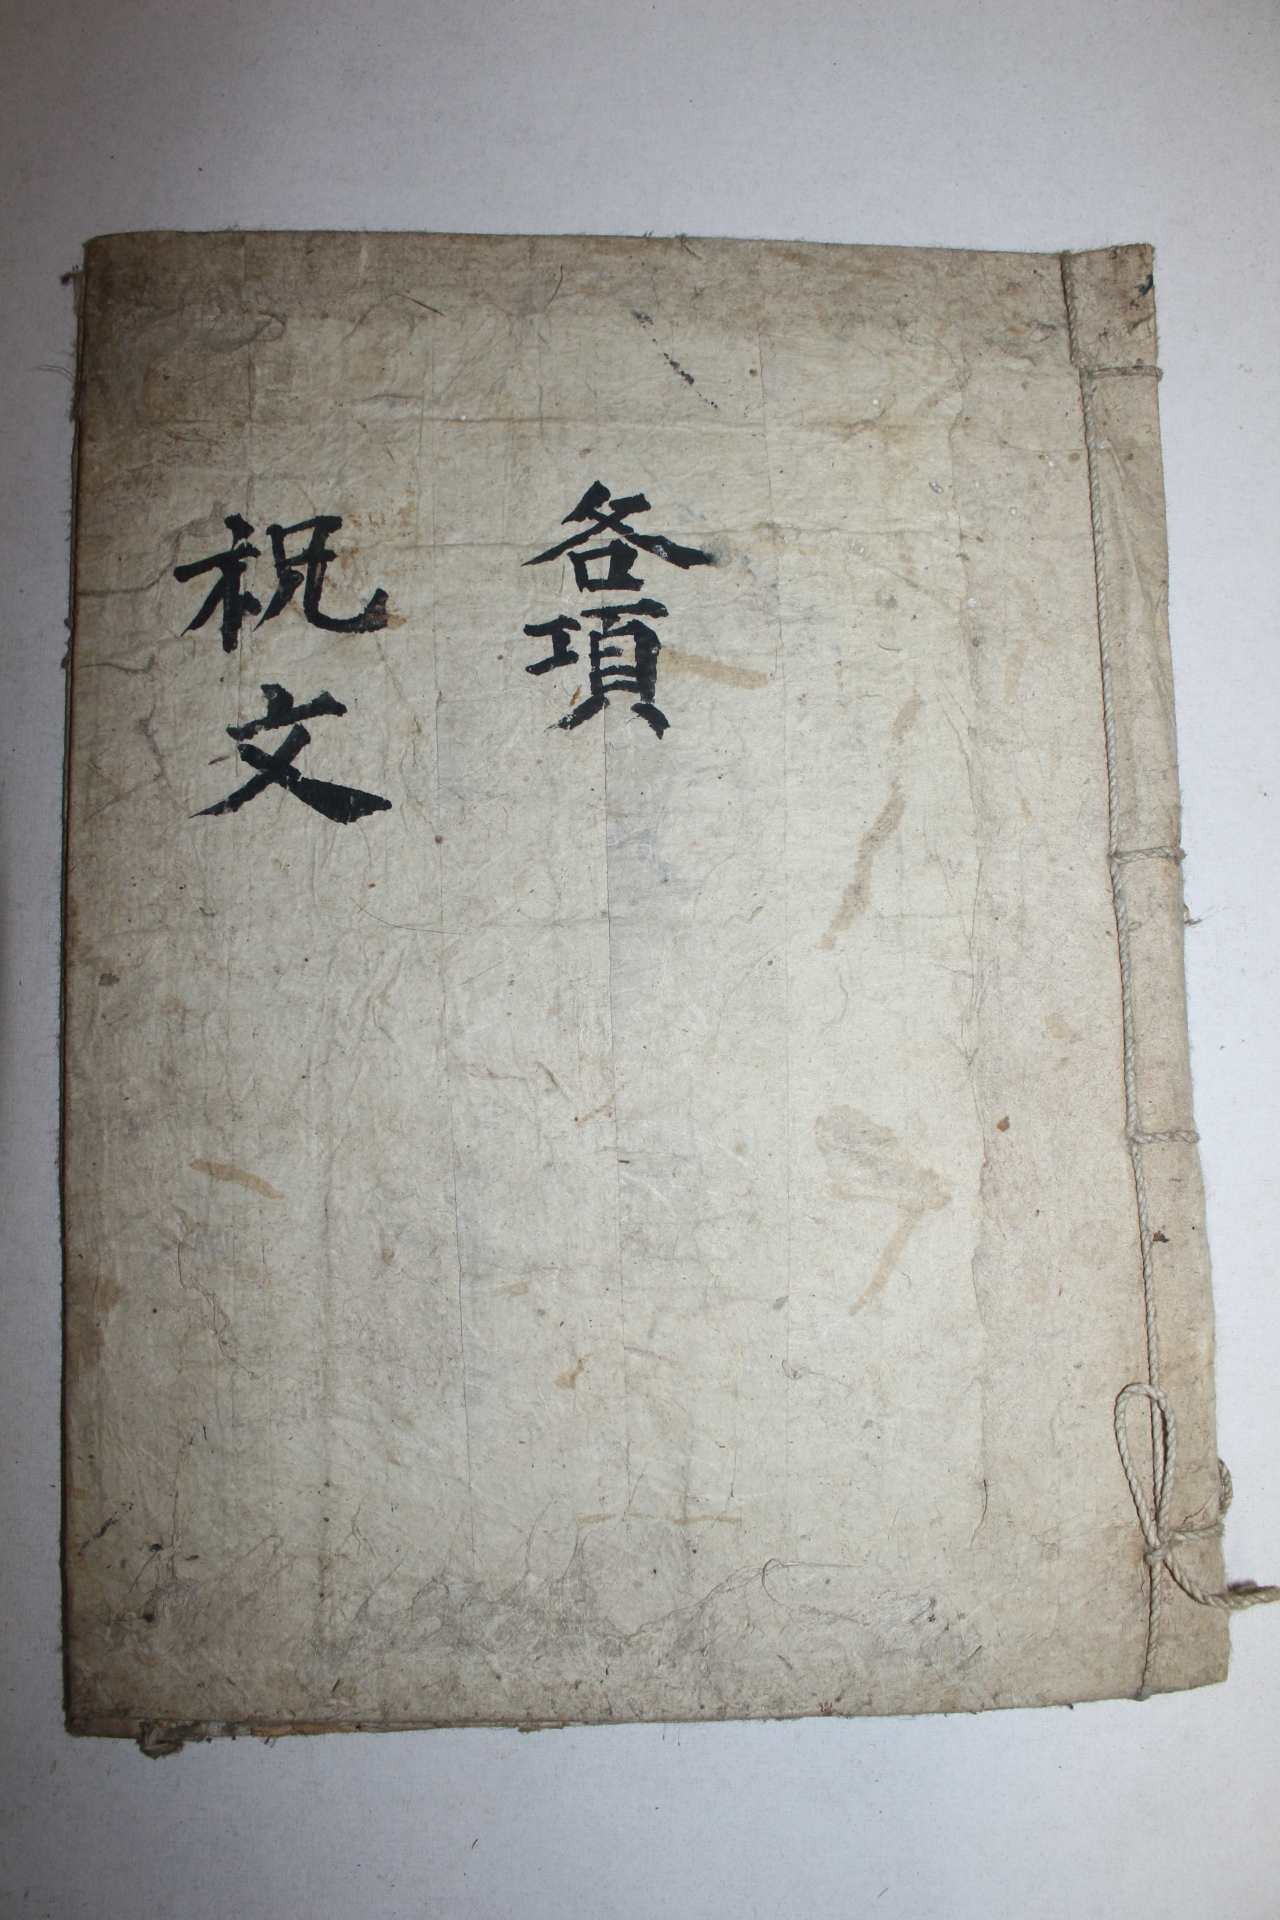 各項
祝文